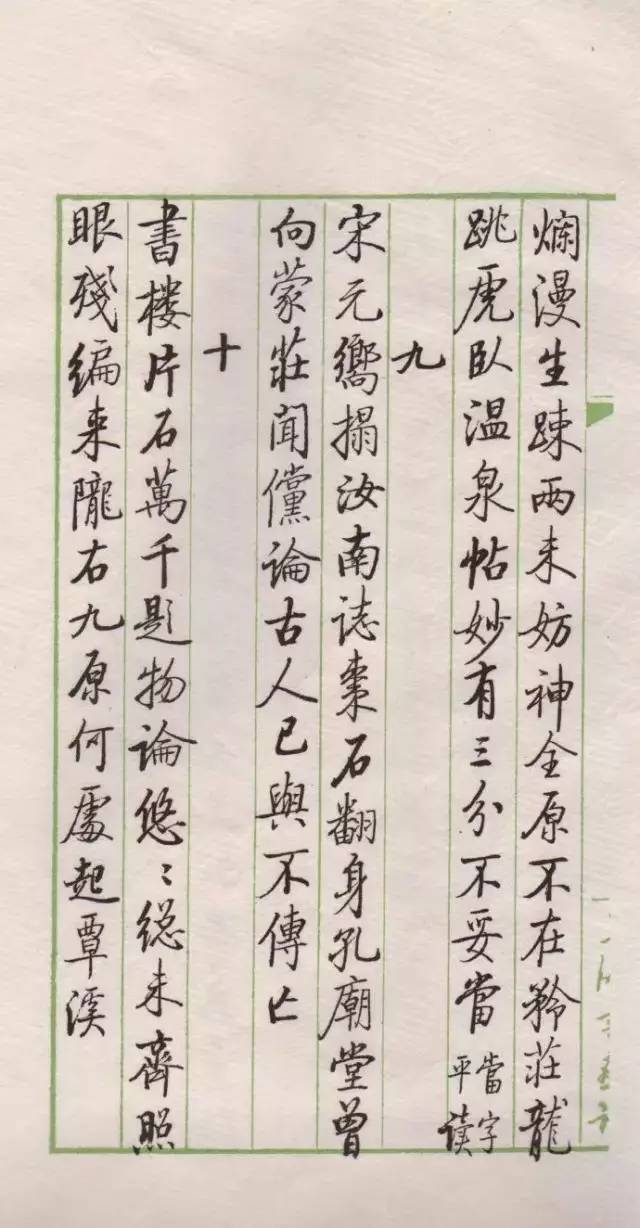 爛漫生疎兩未妨神全原不在矜莊龍
跳虎卧温泉帖妙有三分不妥當當字平读
九
宋元嚮搨汝南誌棗石翻身孔廟堂曾
向蒙莊聞儻論古人已與不傳亡
十
書楼片石萬千題物論悠〻總未齊照
眼殘編来隴右九原何處起覃溪